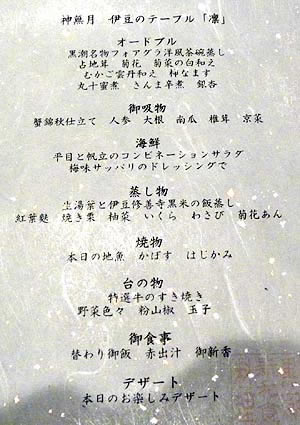 神無月　伊豆のテーブル「凛」
オードブル
黒潮名物フォアグラ洋風茶碗蒸し
占地茸　菊花　菊菜の白和え
むかご雲丹和え　柿なます
丸十蜜煮　きんま卒煮　銀杏
御吸物
蟹錦秋仕立て　人参　大根　南瓜　椎茸　京菜
海鮮
平目と帆立のコンビネーションサラダ
梅味サッパリのドレッシングで
蒸し物
生湯葉と伊豆修善寺黒米の飯蒸し
紅葉麩　焼き栗　柚菜　いくら　わさび　菊花あん
焼物
本日の地魚　かぼす　はじかみ
台の物
特選牛のすき焼き
野菜色々　粉山椒　玉子
御食事
替わり御飯　赤出汁　御新香
デザート
本日のお楽しみデザート